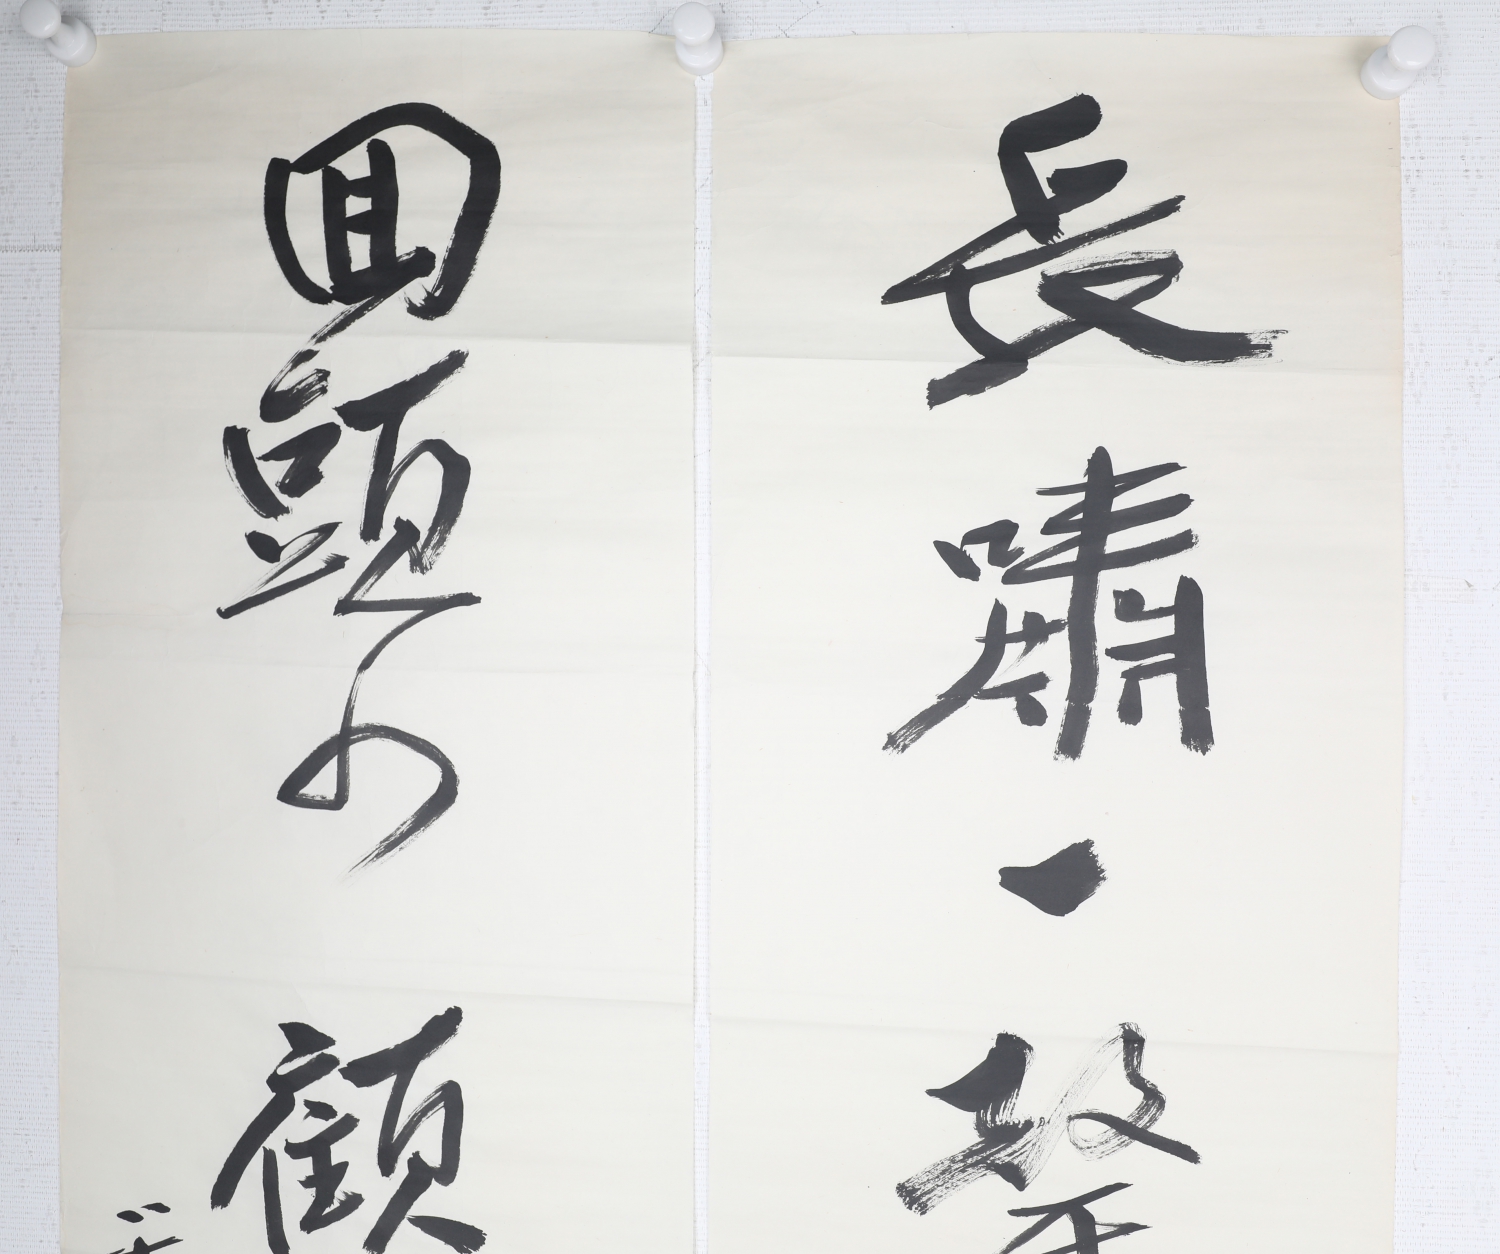 長嘯一聲
回頭顧